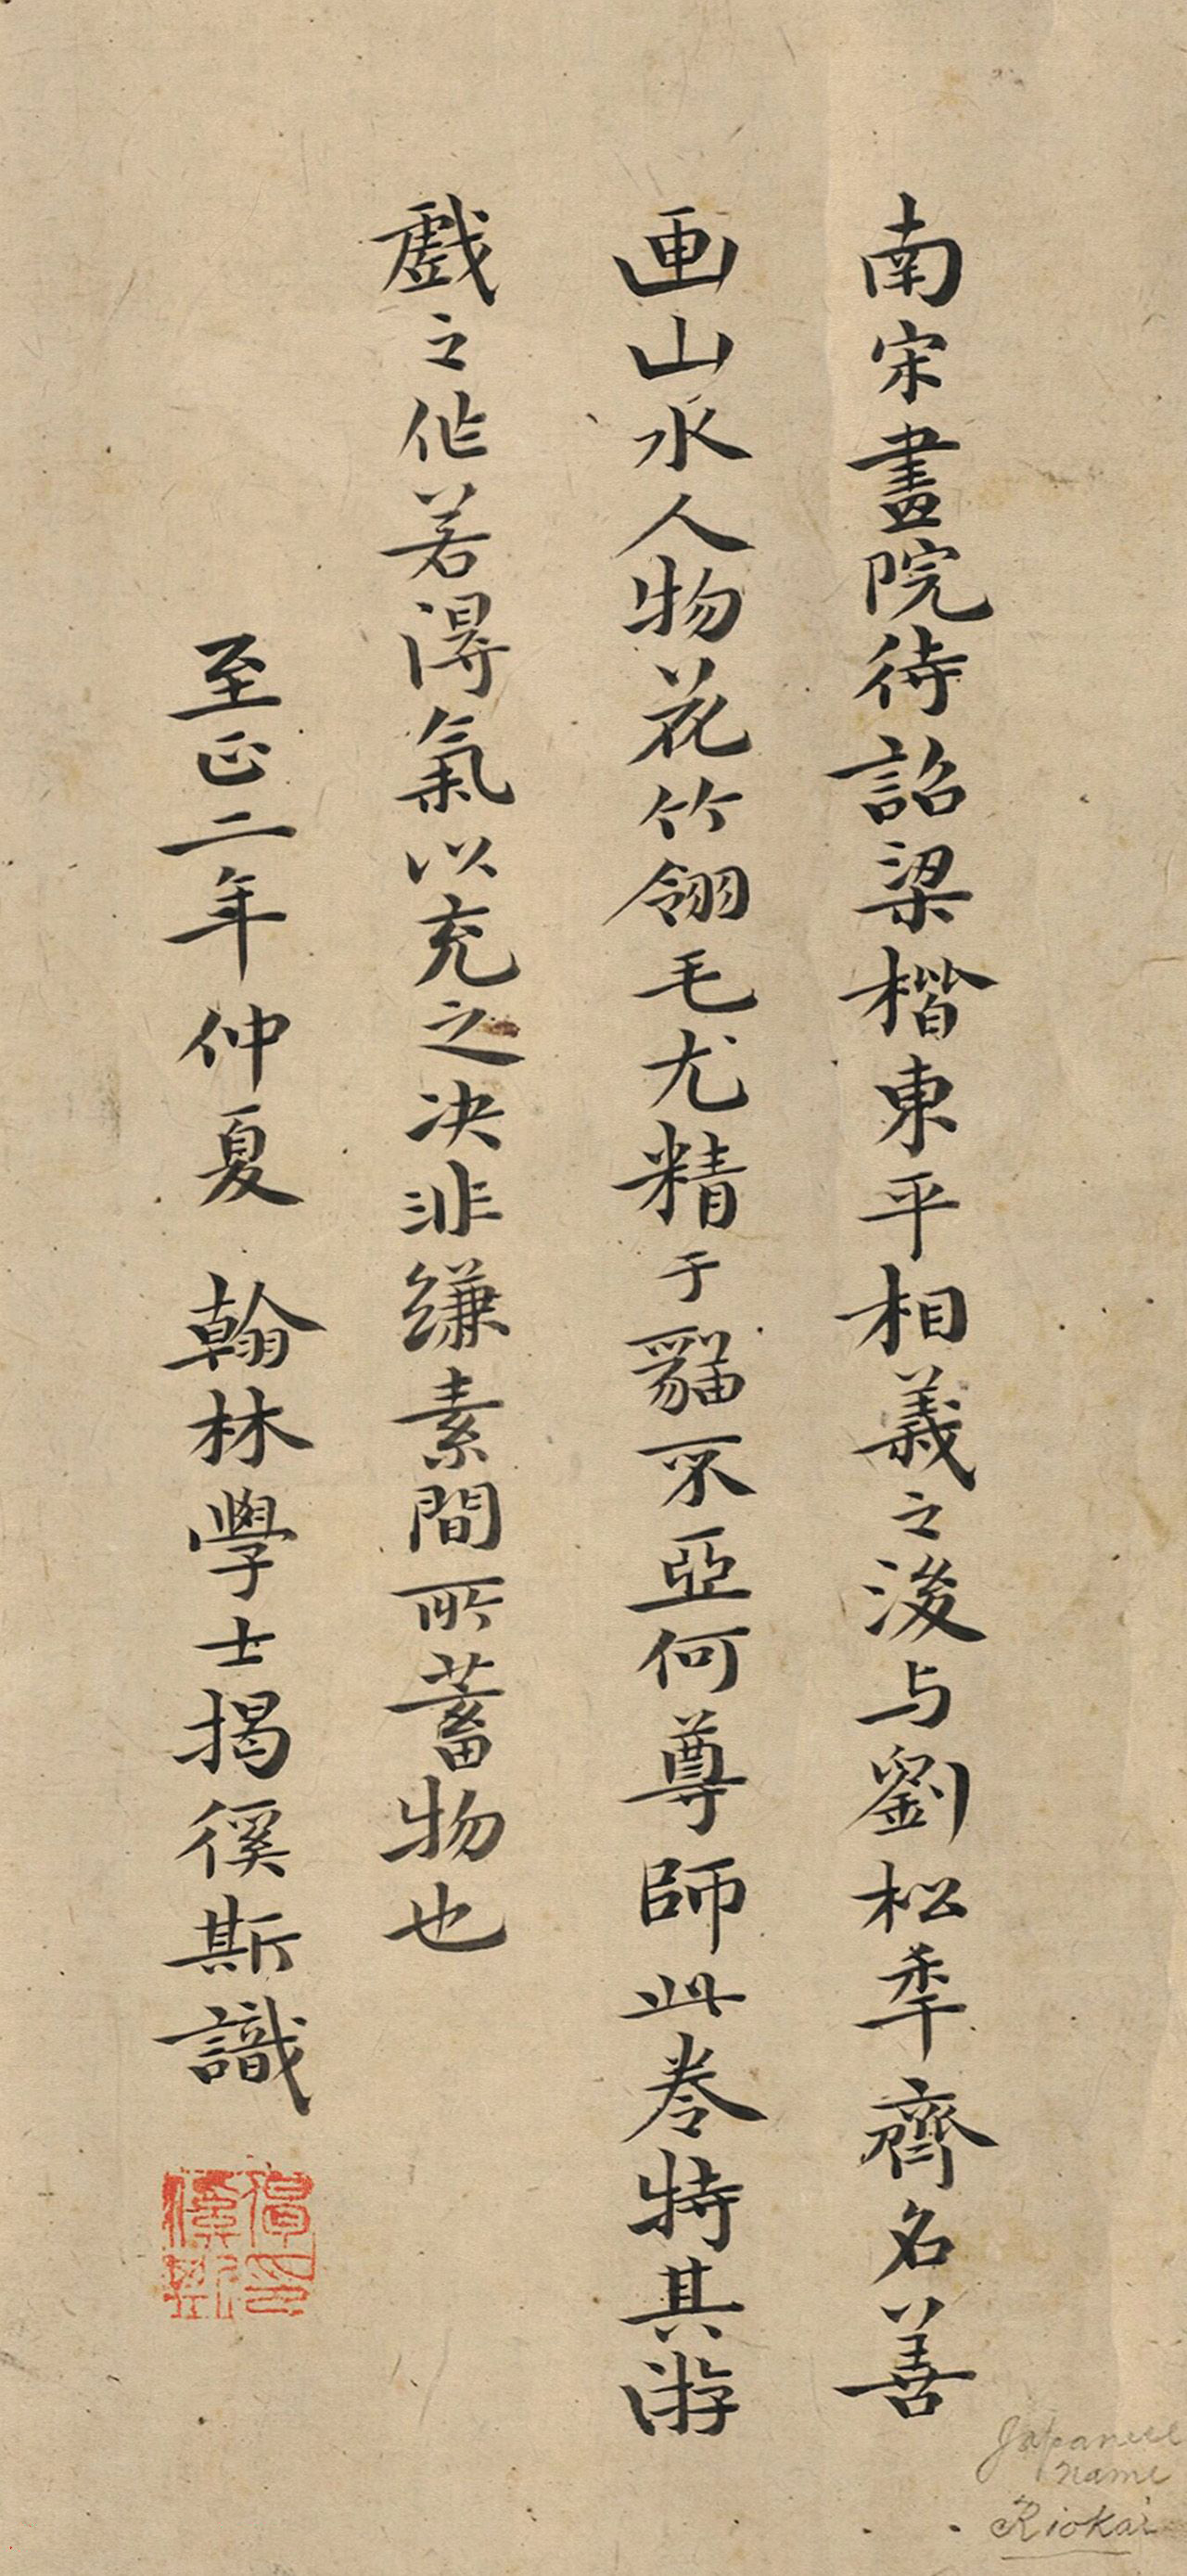 南宋畫院待詔梁楷東平相義之後与劉松年齊名善
画山水人物花竹翎毛尤精于貓不亞何尊師此卷特其游
戲之作若得氣以充之决非縑素間所蓄物也
至正二年仲夏 翰林學士揭傒斯識
Japanese
name
Riokai